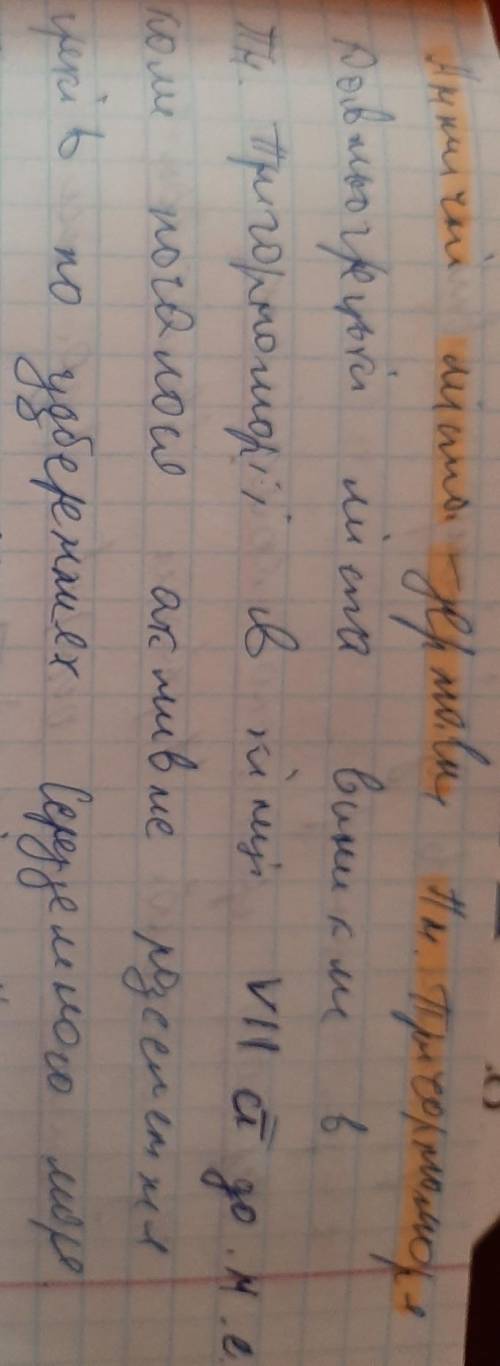 Античні міста-держави Пн. Причорномор'я
Давньогрецькі міста виникли в
Пн. Причорноморії в кінці VII ст до н.е.
коли почалося активне розселення
греків по узбережжях Середземного моря